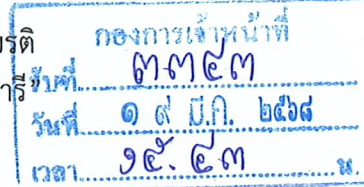 ยรติ กองการเจ้าหน้าที่
ารี” รับที่ ๓๓๕๓
วันที่ ๑ ๙ มี.ค. ๒๕๖๘
เวลา ๑๕.๕๓ น